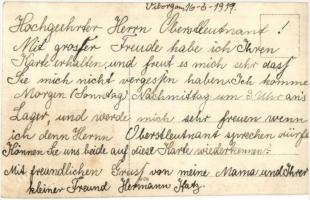 Viborgan, 16-3-1919.
Hochgeehrter Herrn Oberstleutnant!
Mit grosser Freude habe ich Ihren
Karte erhalten, und freut es mich sehr dass
Sie mich nicht vergessen haben. Ich komme
Morgen (Sonntag) Nachmittag um 3 Uhr an's
Lager, und werde mich sehr freuen wenn
ich denn Herrn Oberstleutnant sprechen dürfe
Können Sie uns beide auf diese Karte wiederkennen?
Mit freundlichen Gruss von meine Mama und Ihrer
kleiner Freund Hermann Katz.